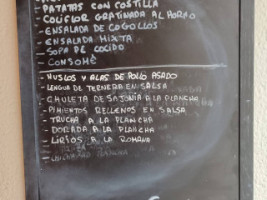 PATATAS CON COSTILLA
COLIFLOR GRATINADA AL HORNO
- ENSALADA DE COGOLLOS
- ENSALADA MIXTA
- SOPA DE COCIDO
- CONSOMÉ
- MUSLOS Y ALAS DE POLLO ASADO
- LENGUA DE TERNERA EN SALSA
- CHULETA DE SAJONIA A LA PLANCHA
- PIMIENTOS RELLENOS EN SALSA
- TRUCHA A LA PLANCHA
- DORADA A LA PLANCHA
- LIRIOS A LA ROMANA